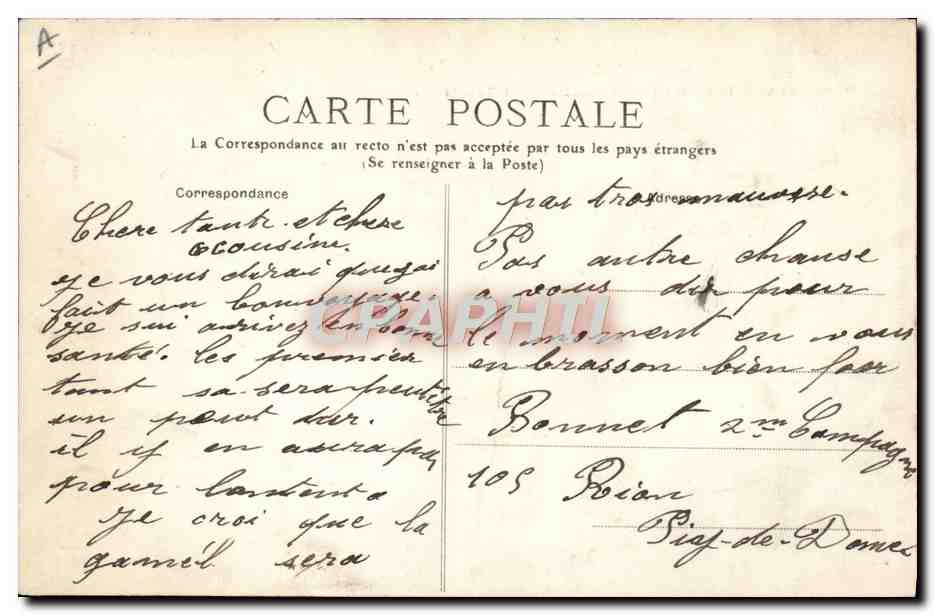 A
CARTE POSTALE
La Correspondance au recto n'est pas acceptée par tous les pays étrangers
(Se renseigner à la Poste)
Correspondance
Chere tante et chere
cousine.
Je vous dirai que jai
fait un bon voyage.
Je sui arrivez en bone
santé. les premier
tant sa sera peut être
un peut dur.
il y en aura pas
pour lontent
Je croi que la
gamél sera
Adresse
pas trop mauvese.
Pas autre chause
a vous dir pour
le moment en vous
en brasson bien foor
Bonnet 2me Compagne
105 Rion
Piy-de-Dome
CPAPHIL